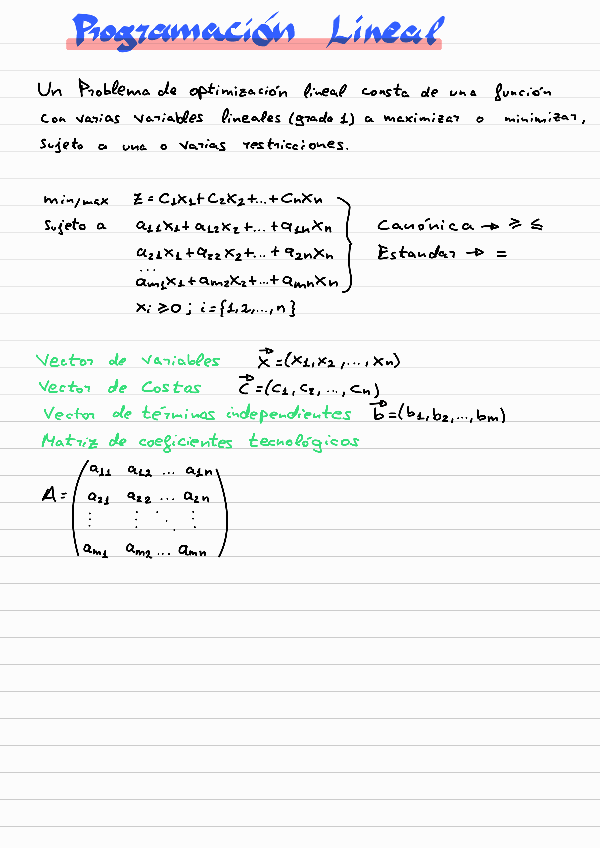 Programación Lineal
Un Problema de optimización lineal consta de una función
con varias variables lineales (grado 1) a maximizar o minimizar,
sujeto a una o varias restricciones.
min/max z = c₁x₁+c₂x₂+...+cₙxₙ
Sujeto a a₁₁x₁+a₁₂x₂+...+a₁ₙxₙ Canónica → ≥ ≤
a₂₁x₁+a₂₂x₂+...+a₂ₙxₙ Estandar → =
...
aₘ₁x₁+aₘ₂x₂+...+aₘₙxₙ
xᵢ ≥ 0 ; i = {1,2,...,n}
Vector de variables x⃗ = (x₁,x₂,...,xₙ)
Vector de Costas c⃗ = (c₁,c₂,...,cₙ)
Vector de términos independientes b⃗ = (b₁,b₂,...,bₘ)
Matriz de coeficientes tecnológicos
a₁₁ a₁₂ ... a₁ₙ
A = a₂₁ a₂₂ ... a₂ₙ
⋮ ⋮ ⋱ ⋮
aₘ₁ aₘ₂ ... aₘₙ